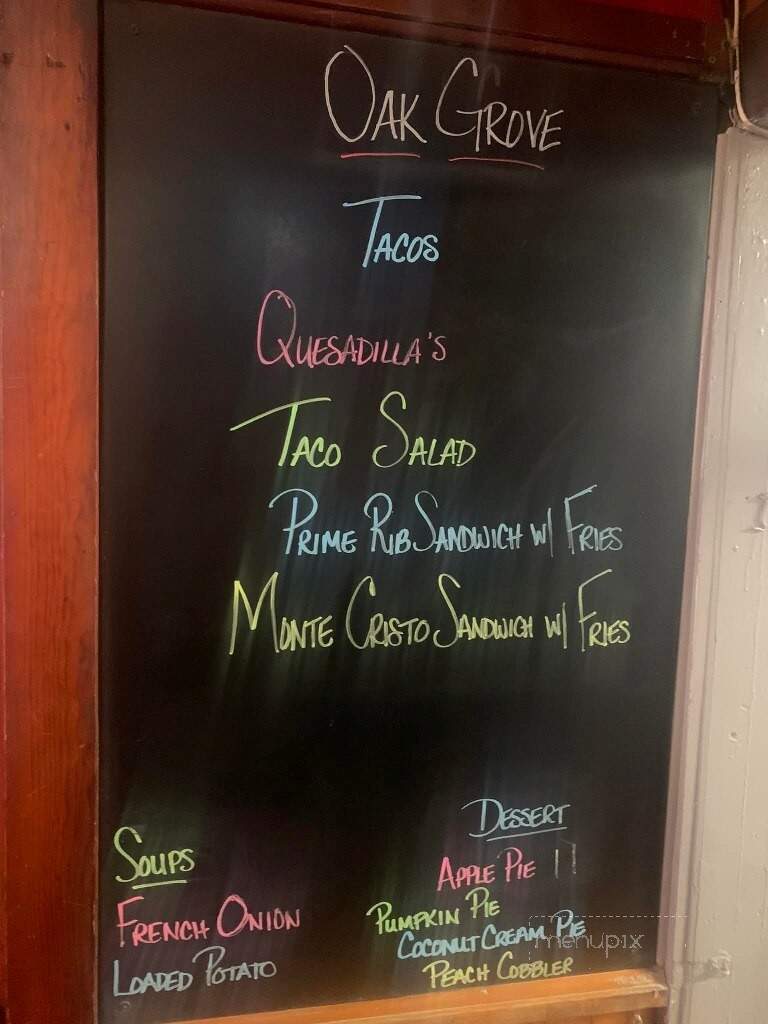 Oak Grove
Tacos
Quesadilla's
Taco Salad
Prime Rib Sandwich w/ Fries
Monte Cristo Sandwich w/ Fries
Soups
French Onion
Loaded Potato
Dessert
Apple Pie
Pumpkin Pie
Coconut Cream Pie
Peach Cobbler
menupix